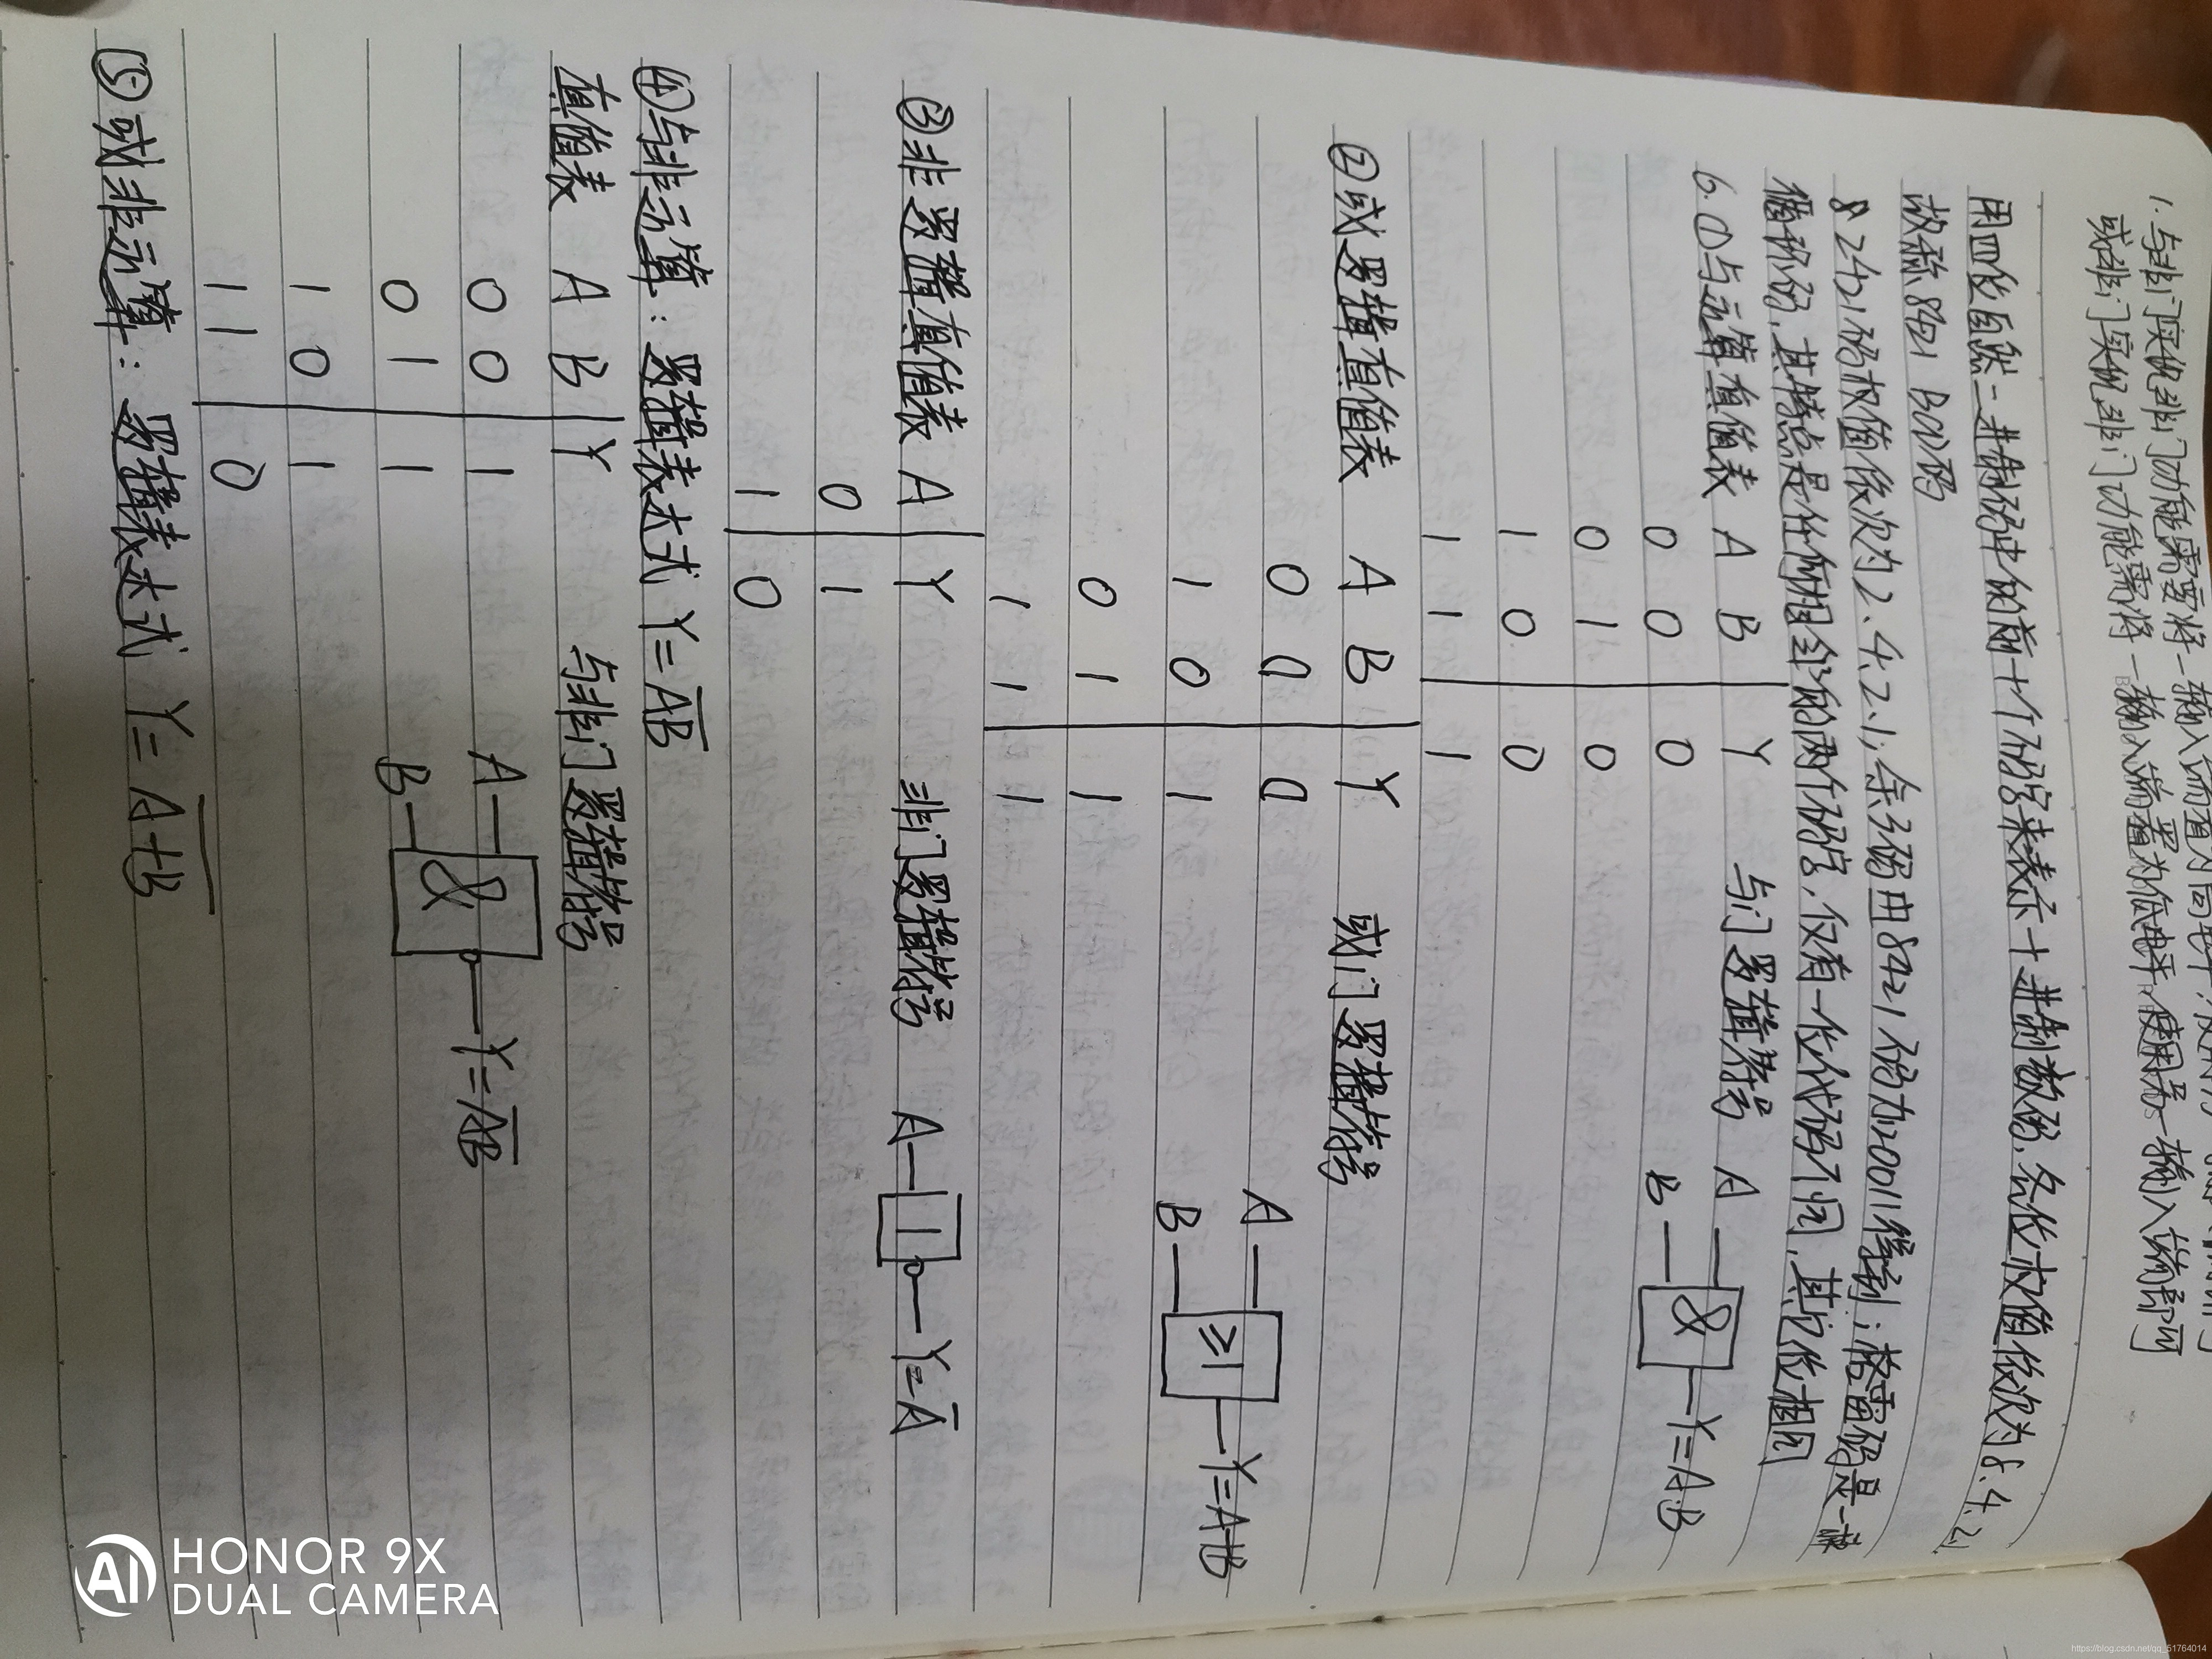 1.与非门实现非门功能需要将一输入端置为高电平
或非门实现非门功能需将一输入端置为低电平,使用另一输入端即可
用四位自然二进制码中的前十个码字来表示十进制数码,各位权值依次为8.4.2.1
故称8421 BCD码
8 2421码权值依次为2.4.2.1;余3码由8421码加0011得到;格雷码是一种
循环码,其特点是任何相邻的两个码字,仅有一位代码不同,其它位相同
6.①与运算真值表 A B Y 与门逻辑符号 A B & Y=A·B
0 0 0
0 1 0
1 0 0
1 1 1
②或逻辑真值表 A B Y 或门逻辑符号
0 0 0 A B ≥1 Y=A+B
1 0 1
0 1 1
1 1 1
③非逻辑真值表 A Y 非门逻辑符号 A 1 Y=A̅
0 1
1 0
④与非运算:逻辑表达式 Y=A̅B̅
真值表 A B Y 与非门逻辑符号
0 0 1 A B & Y=A̅B̅
0 1 1
1 0 1
1 1 0
⑤或非运算:逻辑表达式 Y=A̅+̅B̅
HONOR 9X
DUAL CAMERA
AI
https://blog.csdn.net/qq_51764014